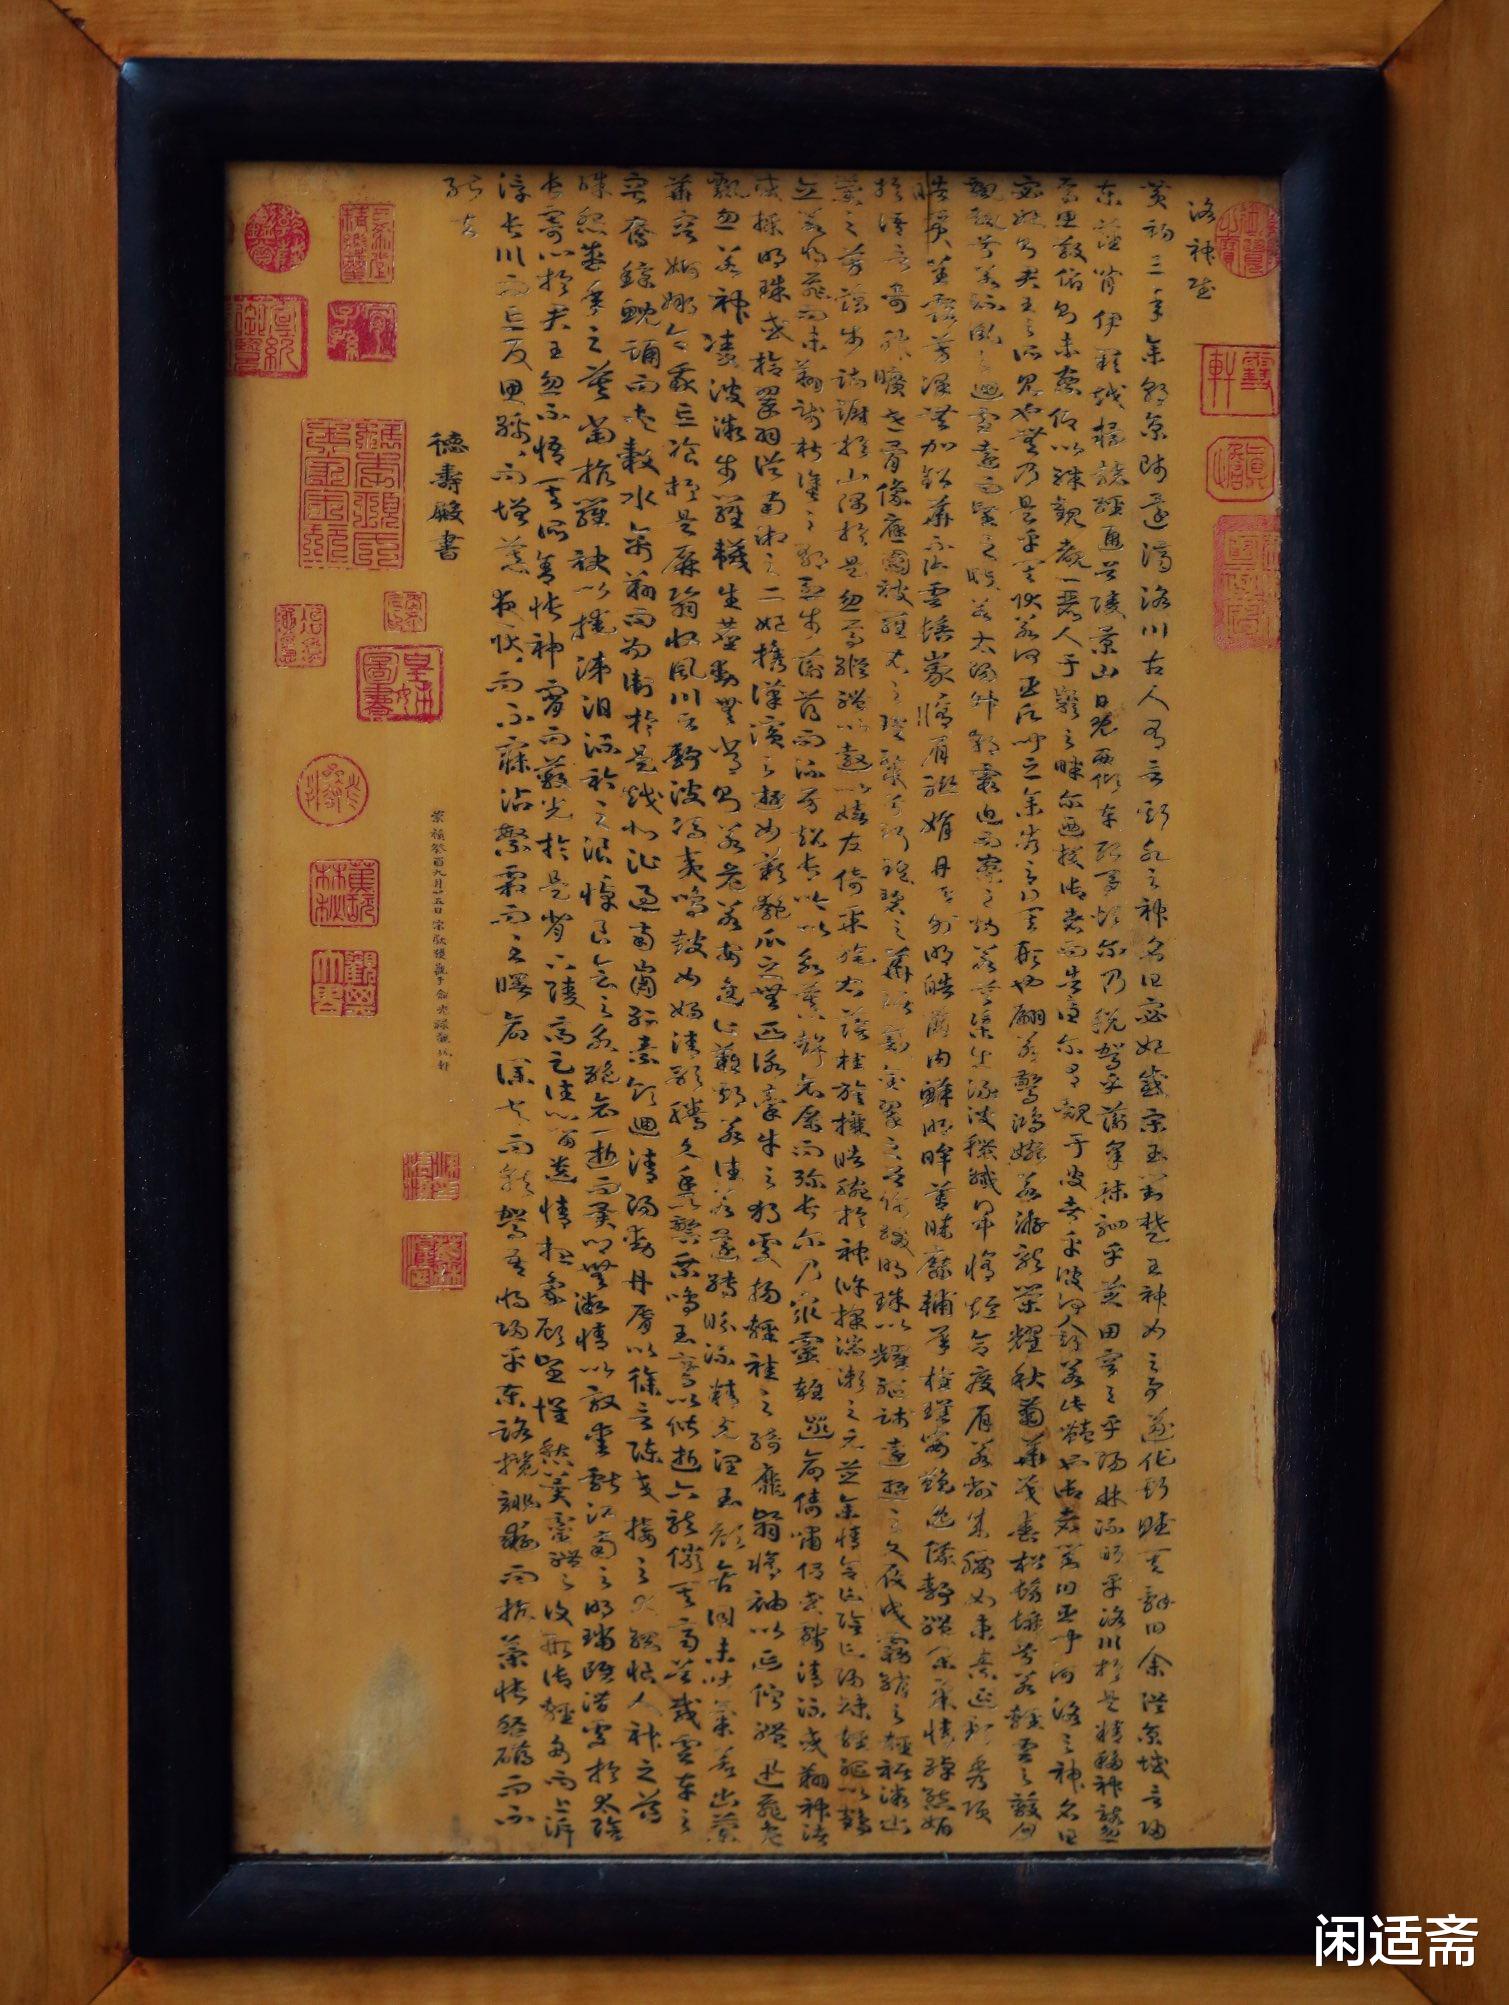 洛神賦
黃初三年余朝京師還濟洛川古人有言斯水之神名曰宓妃感宋玉對楚王神女之事遂作斯賦其辭曰余從京域言歸
東藩背伊闕越轘轅經通谷陵景山日既西傾車殆馬煩爾乃稅駕乎蘅皋秣駟乎芝田容與乎陽林流眄乎洛川於是精移神駭忽
焉思散俯則未察仰以殊觀覩一麗人于巖之畔爾迺援御者而告之曰爾有覿于彼者乎彼何人斯若此豔也御者對曰臣聞河洛之神名曰
宓妃則君王之所見也無乃是乎其狀若何臣願聞之余告之曰其形也翩若驚鴻婉若游龍榮耀秋菊華茂春松髣髴兮若輕雲之蔽月
飄颻兮若流風之迴雪遠而望之皎若太陽升朝霞迫而察之灼若芙蕖出淥波穠纖得中脩短合度肩若削成腰如束素延頸秀項
皓質呈露芳澤無加鉛華不御雲髻峩峩脩眉聯娟丹唇外朗皓齒內鮮明眸善睞靨輔承權瓌姿艷逸儀靜體閑柔情綽態媚
於語言奇服曠世骨像應圖披羅衣之璀粲兮珥瑤碧之華琚戴金翠之首飾綴明珠以耀軀踐遠遊之文履曳霧綃之輕裾微幽
蘭之芳藹步踟躕於山隅於是忽焉縱體以遨以嬉左倚采旄右蔭桂旗攘皓腕於神滸採湍瀨之元芝余情乍陰乍陽竦輕軀以鶴
立若將飛而未翔踐椒塗之郁烈步蘅薄而流芳超長吟以永慕聲哀厲而彌長爾乃眾靈雜遝命儔嘯侶或戲清流或翔神渚
或採明珠或拾翠羽從南湘之二妃攜漢濱之遊女歎匏瓜之無匹詠牽牛之獨處揚輕袿之綺靡翳脩袖以延佇體迅飛鳧
飄忽若神凌波微步羅韈生塵動無常則若危若安進止難期若往若還轉眄流精光潤玉顏含詞未吐氣若幽蘭
華容婀娜令我忘飡於是屏翳收風川后靜波馮夷鳴鼓女媧清歌騰文魚以警乘鳴玉鸞以偕逝六龍儼其齊首載雲車之
容裔鯨鯢踊而夾轂水禽翔而為衛於是越北沚過南岡紆素領迴清陽動丹唇以徐言陳交接之大綱恨人神之道
殊怨盛年之莫當抗羅袂以掩涕泪流衿之浪浪悼良會之永絕哀一逝而異鄉無微情以效愛獻江南之明璫雖潛處於太陰
長寄心於君王忽不悟其所舍悵神宵而蔽光於是背下陵高足往心留遺情想象顧望懷愁冀靈體之復形御輕舟而上泝
浮長川而忘反思綿綿而增慕夜耿耿而不寐沾繁霜而至曙命僕夫而就駕吾將歸乎東路攬騑轡而抗策悵盤桓而不
能去
德壽殿書
崇禎癸酉九月廿五日
閒適斋